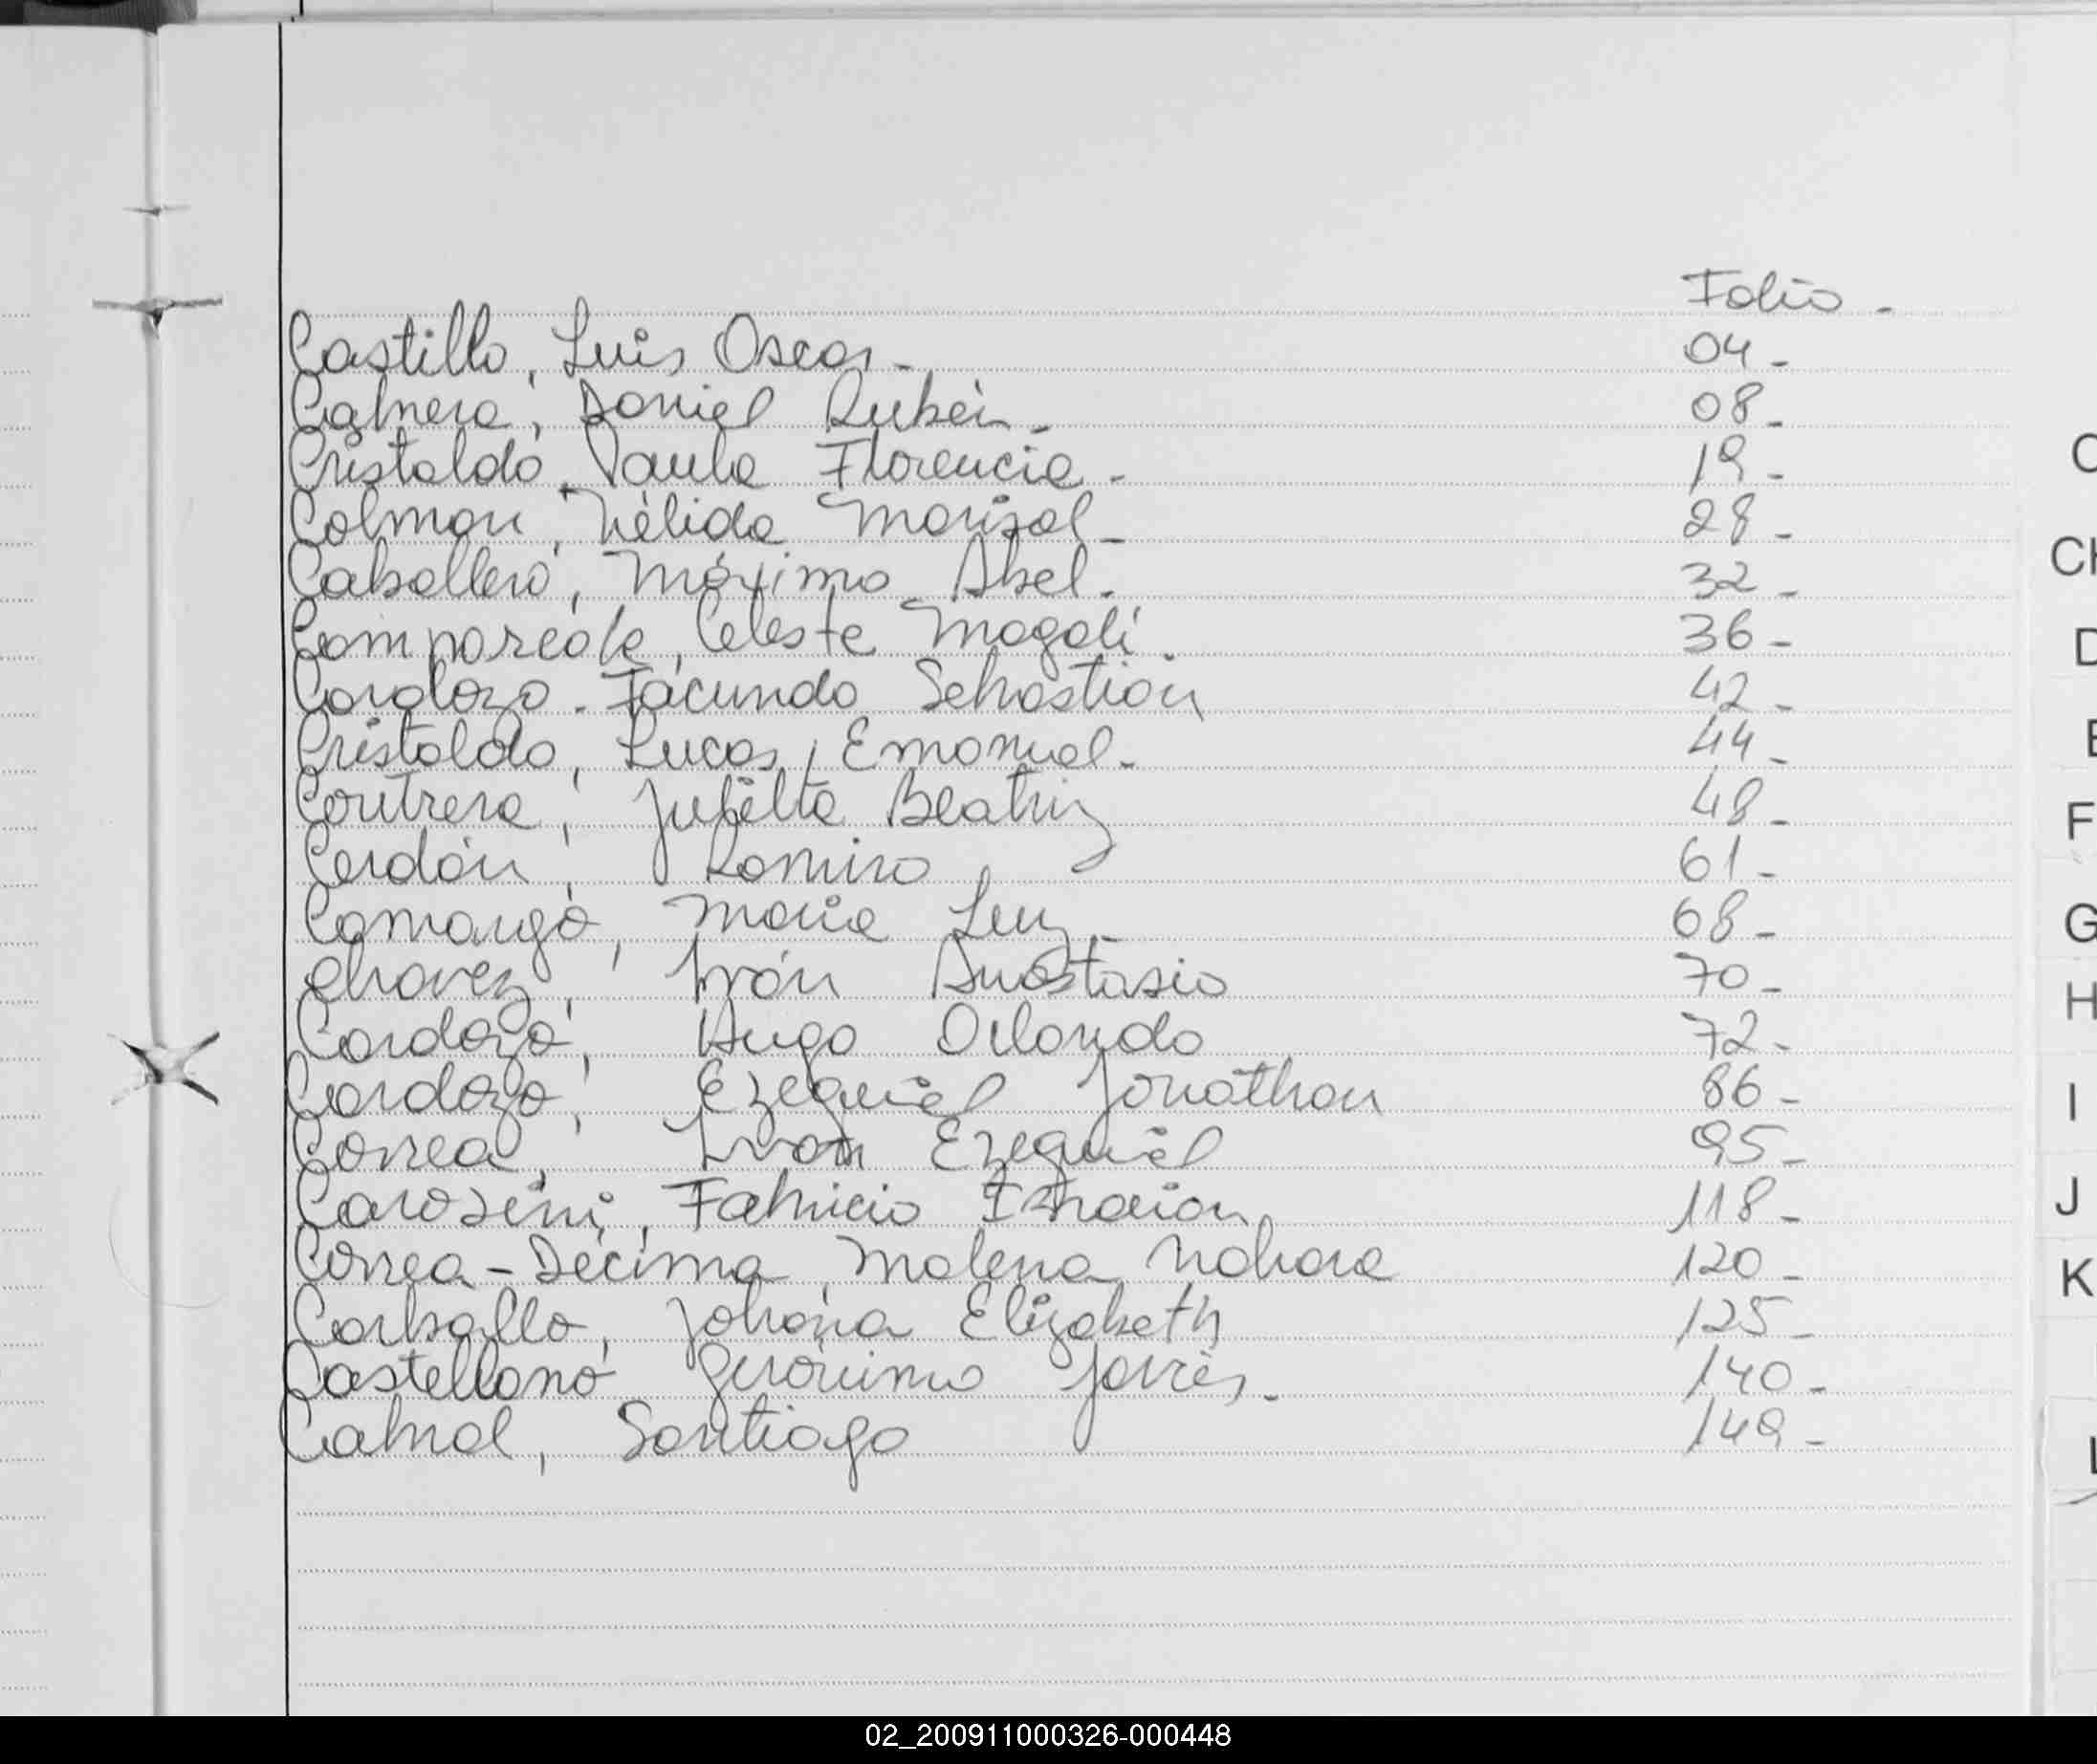 Folio -
Castillo, Luis Oscar - 04 -
Cabrera, Daniel Rubén - 08 -
Cristaldo, Paula Florencia - 19 -
Colman, Nélida Marisol - 28 -
Caballero, Máximo Abel. 32 -
Campareale, Celeste Magalí. 36 -
Cardozo - Facundo Sebastián 42 -
Cristaldo, Lucas, Emanuel - 44 -
Contrera, Julieta Beatriz 48 -
Cerdán, Ramiro 61 -
Camargo, María Luz - 68 -
Chavez, Iván Anastasio 70 -
Cardozo, Hugo Orlando 72 -
Cardozo, Ezequiel Jonathan 86 -
Correa, Ivan Ezequiel 95 -
Carosini, Fabricio 118 -
Correa - Décima, Malena Nahara 120 -
Carballo, Johana Elizabeth 125 -
Castellano Gerónimo Javier - 140 -
Cabral, Santiago 149 -
C
CH
D
E
F
G
H
I
J
K
L
02_200911000326-000448